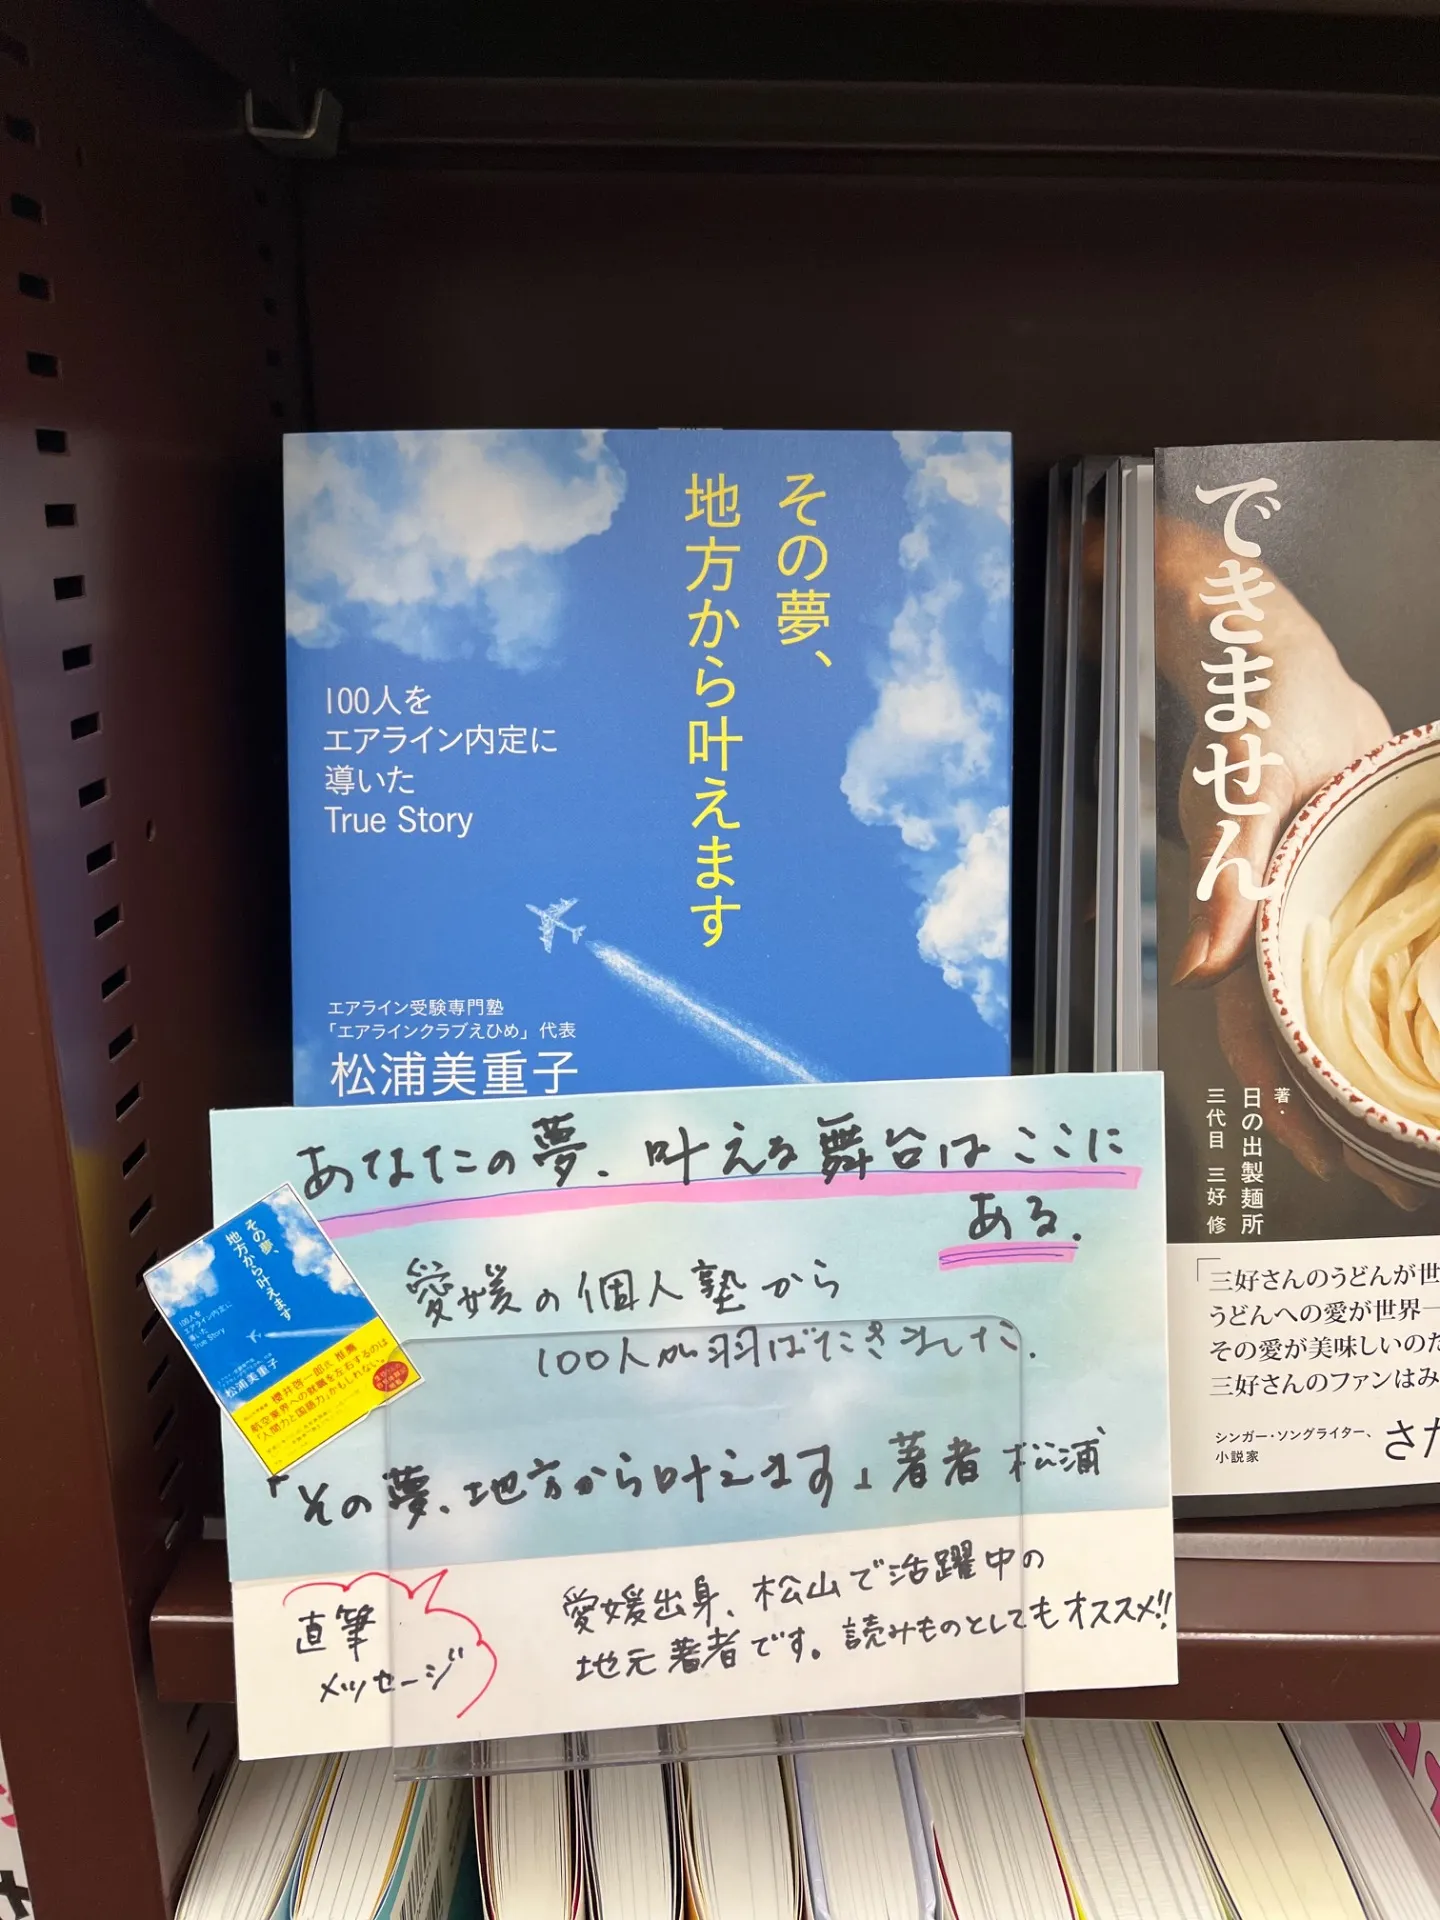 その夢、
地方から叶えます
100人を
エアライン内定に
導いた
True Story
エアライン受験専門塾
「エアラインクラブえひめ」代表
松浦美重子
あなたの夢、叶える舞台はここに
ある.
愛媛の個人塾から
100人が羽ばたきました.
「その夢、地方から叶えます」著者 松浦
直筆
メッセージ
愛媛出身、松山で活躍中の
地元著者です。読みものとしてもオススメ!!
その夢、
地方から叶えます
100人を
エアライン内定に
導いた
True Story
松浦美重子
櫻井啓一郎氏 推薦
航空業界への就職を左右するのは
「人間力と国語力」かもしれない。
できません
著・
日の出製麺所
三代目 三好 修
「三好さんのうどんが世
うどんへの愛が世界一
その愛が美味しいのだ
三好さんのファンはみ
シンガー・ソングライター、
小説家
さだ